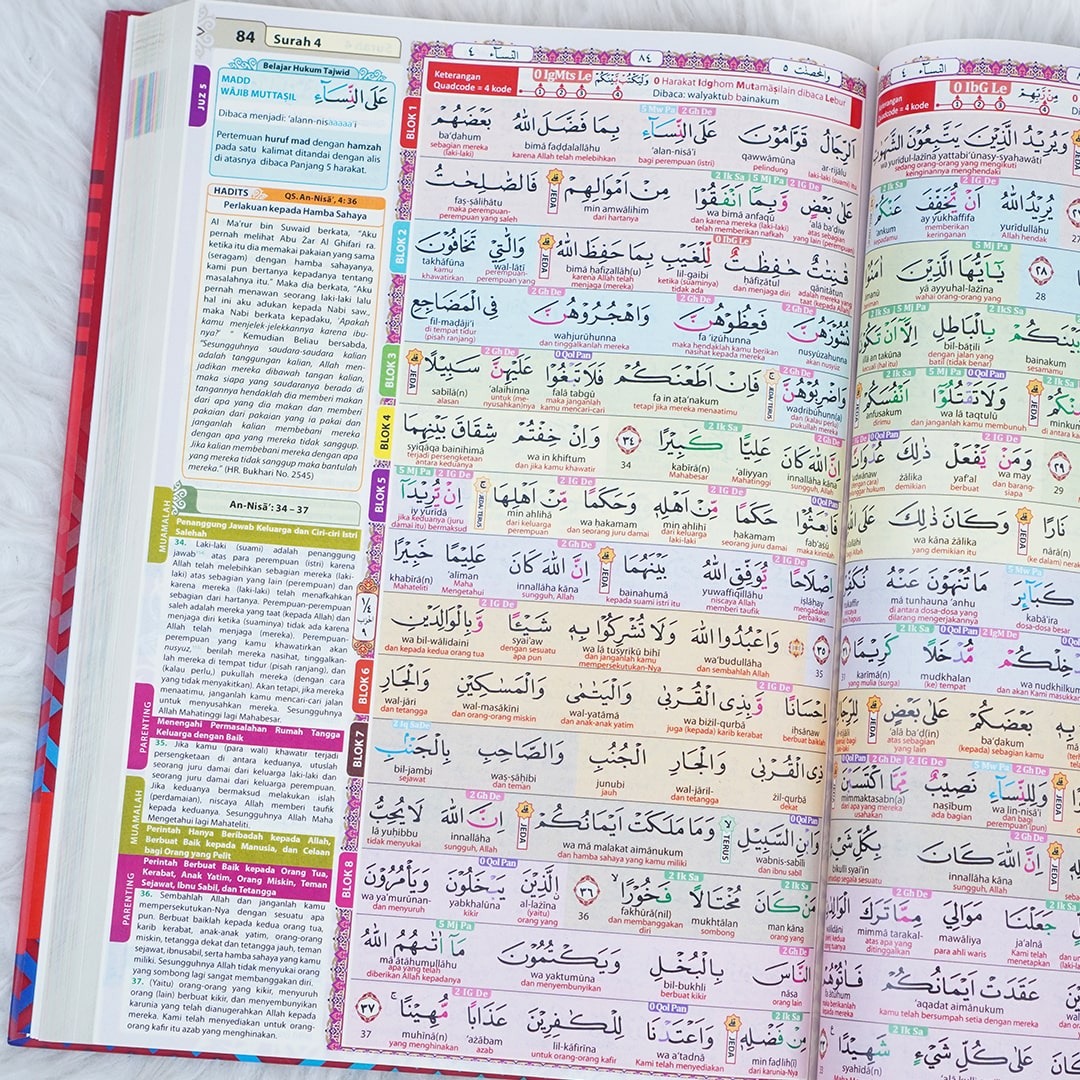 84 Surah 4
Belajar Hukum Tajwid
MADD
WĀJIB MUTTAṢIL
عَلَى النِّسَاۤءِ
Dibaca menjadi: 'alann-nisaaaaa'i
Pertemuan huruf mad dengan hamzah
pada satu kalimat ditandai dengan alis
di atasnya dibaca Panjang 5 harakat.
HADITS QS. An-Nisā', 4: 36
Perlakuan kepada Hamba Sahaya
Al Ma'rur bin Suwaid berkata, "Aku
pernah melihat Abu Żar Al Ghifari ra.
ketika itu dia memakai pakaian yang sama
(seragam) dengan hamba sahayanya,
kami pun bertanya kepadanya tentang
masalahnya itu." Maka dia berkata, "Aku
pernah menawan seorang laki-laki lalu
hal ini aku adukan kepada Nabi saw.,
maka Nabi berkata kepadaku, 'Apakah
kamu menjelek-jelekkannya karena ibu-
nya?' " Kemudian Beliau bersabda,
"Sesungguhnya saudara-saudara kalian
adalah tanggungan kalian, Allah men-
jadikan mereka dibawah tangan kalian,
maka siapa yang saudaranya berada di
tangannya hendaklah dia memberi makan
dari apa yang dia makan dan memberi
pakaian dari pakaian yang ia pakai dan
janganlah kalian membebani mereka
dengan apa yang mereka tidak sanggup.
Jika kalian membebani mereka dengan apa
yang mereka tidak sanggup maka bantulah
mereka." (HR. Bukhari No. 2545)
An-Nisā': 34 – 37
Penanggung Jawab Keluarga dan Ciri-ciri Istri
Salehah
34. Laki-laki (suami) adalah penanggung
jawab atas para perempuan (istri) karena
Allah telah melebihkan sebagian mereka (laki-
laki) atas sebagian yang lain (perempuan) dan
karena mereka (laki-laki) telah menafkahkan
sebagian dari hartanya. Perempuan-perempuan
saleh adalah mereka yang taat (kepada Allah) dan
menjaga diri ketika (suaminya) tidak ada karena
Allah telah menjaga (mereka). Perempuan-
perempuan yang kamu khawatirkan akan
nusyuz, berilah mereka nasihat, tinggalkan-
lah mereka di tempat tidur (pisah ranjang), dan
(kalau perlu,) pukullah mereka (dengan cara
yang tidak menyakitkan). Akan tetapi, jika mereka
menaatimu, janganlah kamu mencari-cari jalan
untuk menyusahkan mereka. Sesungguhnya
Allah Mahatinggi lagi Mahabesar.
Menengahi Permasalahan Rumah Tangga
Keluarga dengan Baik
35. Jika kamu (para wali) khawatir terjadi
persengketaan di antara keduanya, utuslah
seorang juru damai dari keluarga laki-laki dan
seorang juru damai dari keluarga perempuan.
Jika keduanya bermaksud melakukan islah
(perdamaian), niscaya Allah memberi taufik
kepada keduanya. Sesungguhnya Allah Maha
Mengetahui lagi Mahateliti.
Perintah Hanya Beribadah kepada Allah,
Berbuat Baik kepada Manusia, dan Celaan
bagi Orang yang Pelit
Perintah Berbuat Baik kepada Orang Tua,
Kerabat, Anak Yatim, Orang Miskin, Teman
Sejawat, Ibnu Sabil, dan Tetangga
36. Sembahlah Allah dan janganlah kamu
mempersekutukan-Nya dengan sesuatu apa
pun. Berbuat baiklah kepada kedua orang tua,
karib kerabat, anak-anak yatim, orang-orang
miskin, tetangga dekat dan tetangga jauh, teman
sejawat, ibnusabil, serta hamba sahaya yang kamu
miliki. Sesungguhnya Allah tidak menyukai orang
yang sombong lagi sangat membanggakan diri,
37. (Yaitu) orang-orang yang kikir, menyuruh
orang (lain) berbuat kikir, dan menyembunyikan
karunia yang telah dianugerahkan Allah kepada
mereka. Kami telah menyediakan untuk orang-
orang kafir itu azab yang menghinakan.
JUZ 5
MUAMALAH
PARENTING
MUAMALAH
PARENTING
النساء ٤ ٨٤ والمحصنت ٥
Keterangan
Quadcode = 4 kode
0 IgMts Le
0 Harakat Idghom Mutamāṡilain dibaca Lebur
Dibaca: walyaktub bainakum
BLOK 1
اَلرِّجَالُ قَوَّامُوْنَ عَلَى النِّسَاۤءِ بِمَا فَضَّلَ اللّٰهُ بَعْضَهُمْ
ar-rijālu qawwāmūna 'alan-nisā'i bimā faḍḍalallāhu ba'ḍahum
laki-laki (suami) itu pelindung bagi perempuan (istri) karena Allah telah melebihkan sebagian mereka (laki-laki)
عَلٰى بَعْضٍ وَّبِمَآ اَنْفَقُوْا مِنْ اَمْوَالِهِمْ فَالصّٰلِحٰتُ
'alā ba'ḍiw wa bimā anfaqū min amwālihim faṣ-ṣāliḥātu
atas sebagian yang lain (perempuan) dan karena mereka (laki-laki) telah memberikan nafkah dari hartanya maka perempuan-perempuan yang saleh
BLOK 2
قٰنِتٰتٌ حٰفِظٰتٌ لِّلْغَيْبِ بِمَا حَفِظَ اللّٰهُ وَالّٰتِيْ تَخَافُوْنَ
qānitātun ḥāfiẓātul lil-gaibi bimā ḥafiẓallāh(u) wal-lātī takhāfūna
adalah mereka yang taat (kepada Allah) dan menjaga diri ketika (suaminya) tidak ada karena Allah telah menjaga (mereka) perempuan-perempuan yang kamu khawatirkan
نُشُوْزَهُنَّ فَعِظُوْهُنَّ وَاهْجُرُوْهُنَّ فِى الْمَضَاجِعِ
nusyūzahunna fa 'iẓūhunna wahjurūhunna fil-maḍāji'i
akan nusyuz maka hendaklah kamu berikan nasihat kepada mereka dan tinggalkanlah mereka di tempat tidur (pisah ranjang)
BLOK 3
وَاضْرِبُوْهُنَّ فَاِنْ اَطَعْنَكُمْ فَلَا تَبْغُوْا عَلَيْهِنَّ سَبِيْلًا
waḍribūhunn(a) fa in aṭa'nakum falā tabgū 'alaihinna sabīlā(n)
dan (kalau perlu) pukullah mereka tetapi jika mereka menaatimu maka janganlah kamu mencari-cari untuk (me-nyusahkan)nya alasan
BLOK 4
اِنَّ اللّٰهَ كَانَ عَلِيًّا كَبِيْرًا ٣٤ وَاِنْ خِفْتُمْ شِقَاقَ بَيْنِهِمَا
innallāha kāna 'aliyyan kabīrā(n) 34 wa in khiftum syiqāqa bainihimā
sungguh, Allah Mahatinggi Mahabesar dan jika kamu khawatir terjadi persengketaan antara keduanya
BLOK 5
فَابْعَثُوْا حَكَمًا مِّنْ اَهْلِهٖ وَحَكَمًا مِّنْ اَهْلِهَا اِنْ يُّرِيْدَآ
fab'aṡū ḥakamam min ahlihī wa ḥakamam min ahlihā iy yurīdā
maka kirimlah seorang juru damai dari keluarga laki-laki dan seorang juru damai dari keluarga perempuan jika keduanya (juru damai itu) bermaksud
اِصْلَاحًا يُّوَفِّقِ اللّٰهُ بَيْنَهُمَا اِنَّ اللّٰهَ كَانَ عَلِيْمًا خَبِيْرًا
iṣlāḥay yuwaffiqillāhu bainahumā innallāha kāna 'alīman khabīrā(n)
mengadakan perbaikan niscaya Allah memberi taufik kepada suami istri itu sungguh, Allah Maha Mengetahui Mahateliti
٣٥ وَاعْبُدُوا اللّٰهَ وَلَا تُشْرِكُوْا بِهٖ شَيْـًٔا وَّبِالْوَالِدَيْنِ
35 wa'budullāha wa lā tusyrikū bihī syai'aw wa bil-wālidaini
dan sembahlah Allah dan janganlah kamu mempersekutukan-Nya dengan sesuatu apa pun dan kepada kedua orang tua
BLOK 6
اِحْسَانًا وَّبِذِى الْقُرْبٰى وَالْيَتٰمٰى وَالْمَسٰكِيْنِ وَالْجَارِ
iḥsānaw wa biżil-qurbā wal-yatāmā wal-masākīni wal-jāri
berbuat baiklah juga (kepada) karib kerabat dan anak-anak yatim dan orang-orang miskin dan tetangga
BLOK 7
ذِى الْقُرْبٰى وَالْجَارِ الْجُنُبِ وَالصَّاحِبِ بِالْجَنْۢبِ
żil-qurbā wal-jāril- junubi waṣ-ṣāḥibi bil-jambi
dekat dan tetangga jauh dan teman sejawat
وَابْنِ السَّبِيْلِ وَمَا مَلَكَتْ اَيْمَانُكُمْ اِنَّ اللّٰهَ لَا يُحِبُّ
wabnis-sabīli wa mā malakat aimānukum innallāha lā yuḥibbu
dan ibnu sabil dan hamba sahaya yang kamu miliki sungguh, Allah tidak menyukai
BLOK 8
مَنْ كَانَ مُخْتَالًا فَخُوْرًا ٣٦ اَلَّذِيْنَ يَبْخَلُوْنَ وَيَأْمُرُوْنَ
man kāna mukhtālan fakhūrā(nil) 36 al-lażīna yabkhalūna wa ya'murūnan-
orang yang sombong dan membanggakan diri (yaitu) orang yang kikir dan menyuruh
النَّاسَ بِالْبُخْلِ وَيَكْتُمُوْنَ مَآ اٰتٰىهُمُ اللّٰهُ
nāsa bil-bukhli wa yaktumūna mā ātāhumullāhu
orang lain berbuat kikir dan menyembunyikan apa yang telah diberikan Allah kepadanya
مِنْ فَضْلِهٖ وَاَعْتَدْنَا لِلْكٰفِرِيْنَ عَذَابًا مُّهِيْنًا ٣٧
min faḍlih(ī) wa a'tadnā lil-kāfirīna 'ażābam muhīnā(n) 37
dari karunia-Nya Kami telah menyediakan untuk orang-orang kafir azab yang menghinakan
النساء ٤
Keterangan
Quadcode = 4 kode
0 IbG Le
وَيُرِيْدُ الَّذِيْنَ يَتَّبِعُوْنَ الشَّهَوٰتِ
wa yurīdul-lażīna yattabi'ūnasy-syahawāti
يُرِيْدُ اللّٰهُ اَنْ يُّخَفِّفَ عَنْكُمْ
yuridullāhu ay yukhaffifa 'ankum
Allah hendak memberikan keringanan kepadamu
٢٨ يٰٓاَيُّهَا الَّذِيْنَ
28 yā ayyuhal-lażīna
wahai orang-orang yang
بَيْنَكُمْ بِالْبَاطِلِ اِلَّآ اَنْ
bainakum bil-bāṭili illā an takūna
sesamamu dengan jalan yang batil (tidak benar) kecuali (hal itu)
وَلَا تَقْتُلُوْٓا اَنْفُسَكُمْ
wa lā taqtulū anfusakum
dan janganlah kamu membunuh dirimu
٢٩ وَمَنْ يَّفْعَلْ ذٰلِكَ
29 wa may yaf'al żālika
dan barang-siapa berbuat demikian
نَارًا وَكَانَ ذٰلِكَ
nārā(n) wa kāna żālika
ke (dalam) neraka yang demikian itu
كَبَاۤىِٕرَ مَا تُنْهَوْنَ عَنْهُ
kabā'ira mā tunhauna 'anhu
dosa-dosa besar di antara dosa-dosa yang dilarang mengerjakannya
مُّدْخَلًا كَرِيْمًا
mudkhalan karīmā(n)
(ke) tempat yang mulia (surga)
بَعْضَكُمْ عَلٰى بَعْضٍ
ba'ḍakum 'alā ba'ḍ(in)
(kepada) sebagian kamu atas sebagian yang lain
وَلِلنِّسَاۤءِ نَصِيْبٌ مِّمَّا اكْتَسَبْنَ
wa lin-nisā'i naṣībum mimmaktasabn(a)
dan bagi perempuan (pun) ada bagian dari apa yang mereka usahakan
اِنَّ اللّٰهَ كَانَ
innallāha kāna
sungguh, Allah
جَعَلْنَا مَوَالِيَ مِمَّا تَرَكَ
ja'alnā mawāliya mimmā tarakal-
Kami telah menetapkan para ahli waris atas apa yang ditinggalkan
عَقَدَتْ اَيْمَانُكُمْ
'aqadat aimānukum
kamu telah bersumpah setia dengan mereka
عَلٰى كُلِّ شَيْءٍ شَهِيْدًا
'alā kulli syai'in syahīdā(n)